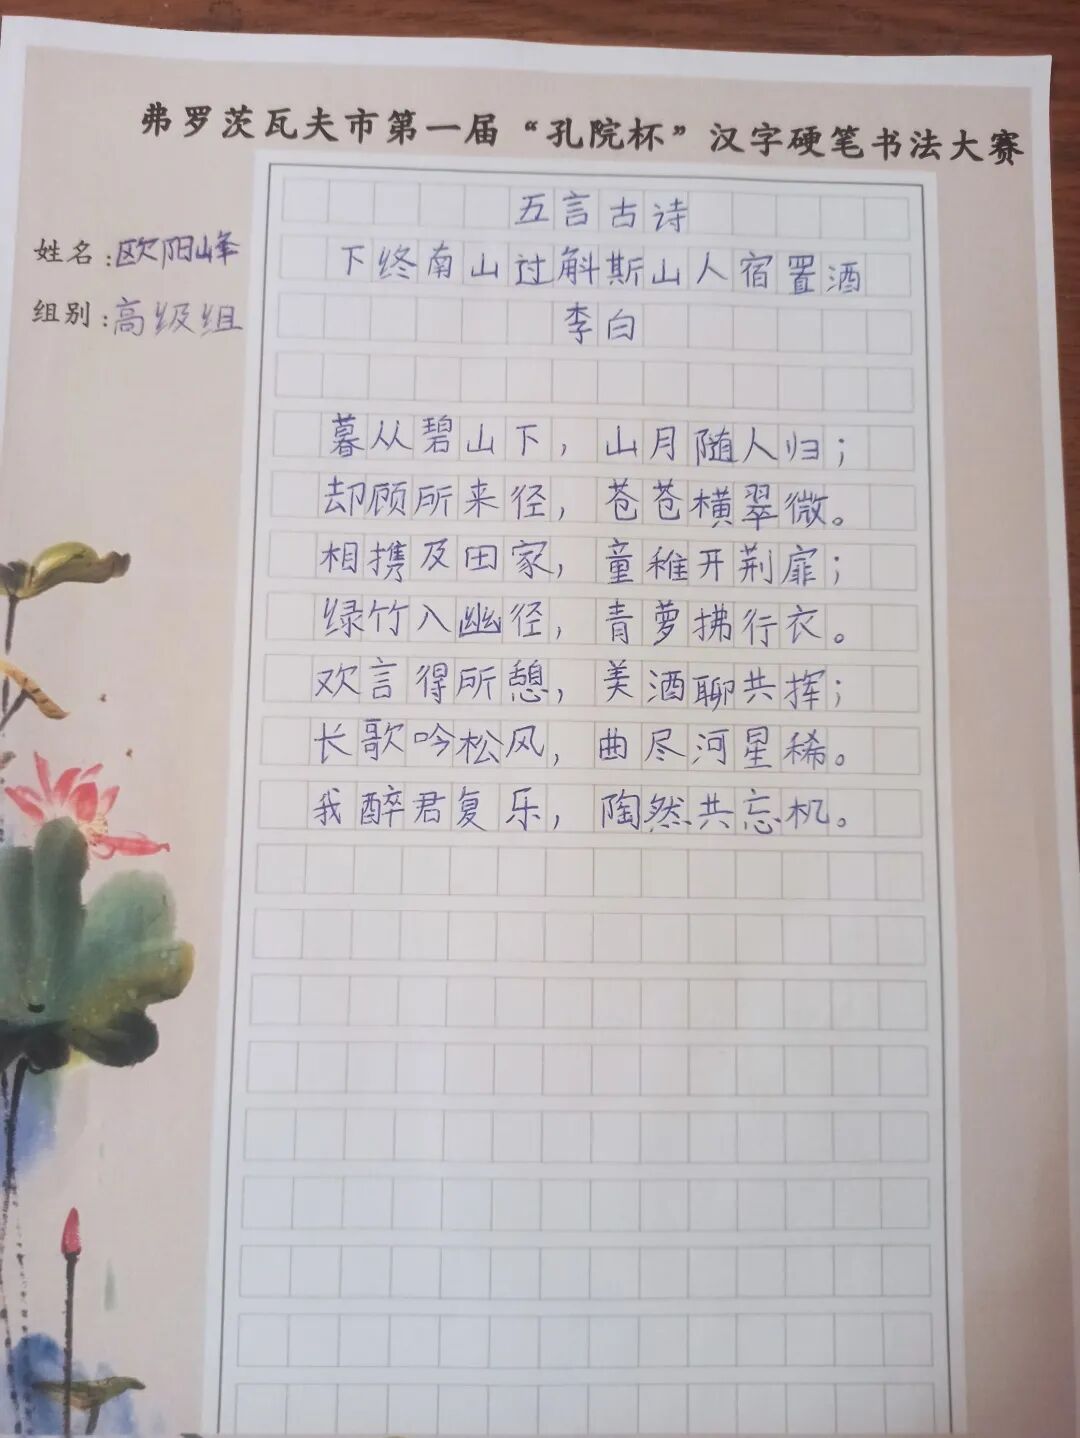 弗罗茨瓦夫市第一届“孔院杯”汉字硬笔书法大赛
姓名:欧阳峰
组别:高级组
五言古诗
下终南山过斛斯山人宿置酒
李白
暮从碧山下，山月随人归；
却顾所来径，苍苍横翠微。
相携及田家，童稚开荆扉；
绿竹入幽径，青萝拂行衣。
欢言得所憩，美酒聊共挥；
长歌吟松风，曲尽河星稀。
我醉君复乐，陶然共忘机。